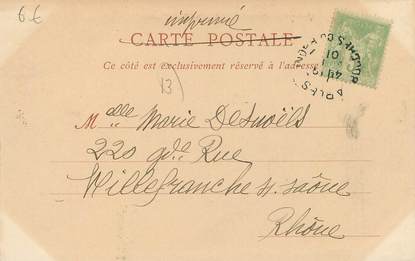 6€
imprimé
CARTE POSTALE
Ce côté est exclusivement réservé à l'adresse
13
Melle Marie Desnoëls
220 gde Rue
Villefranche s. saône
Rhône